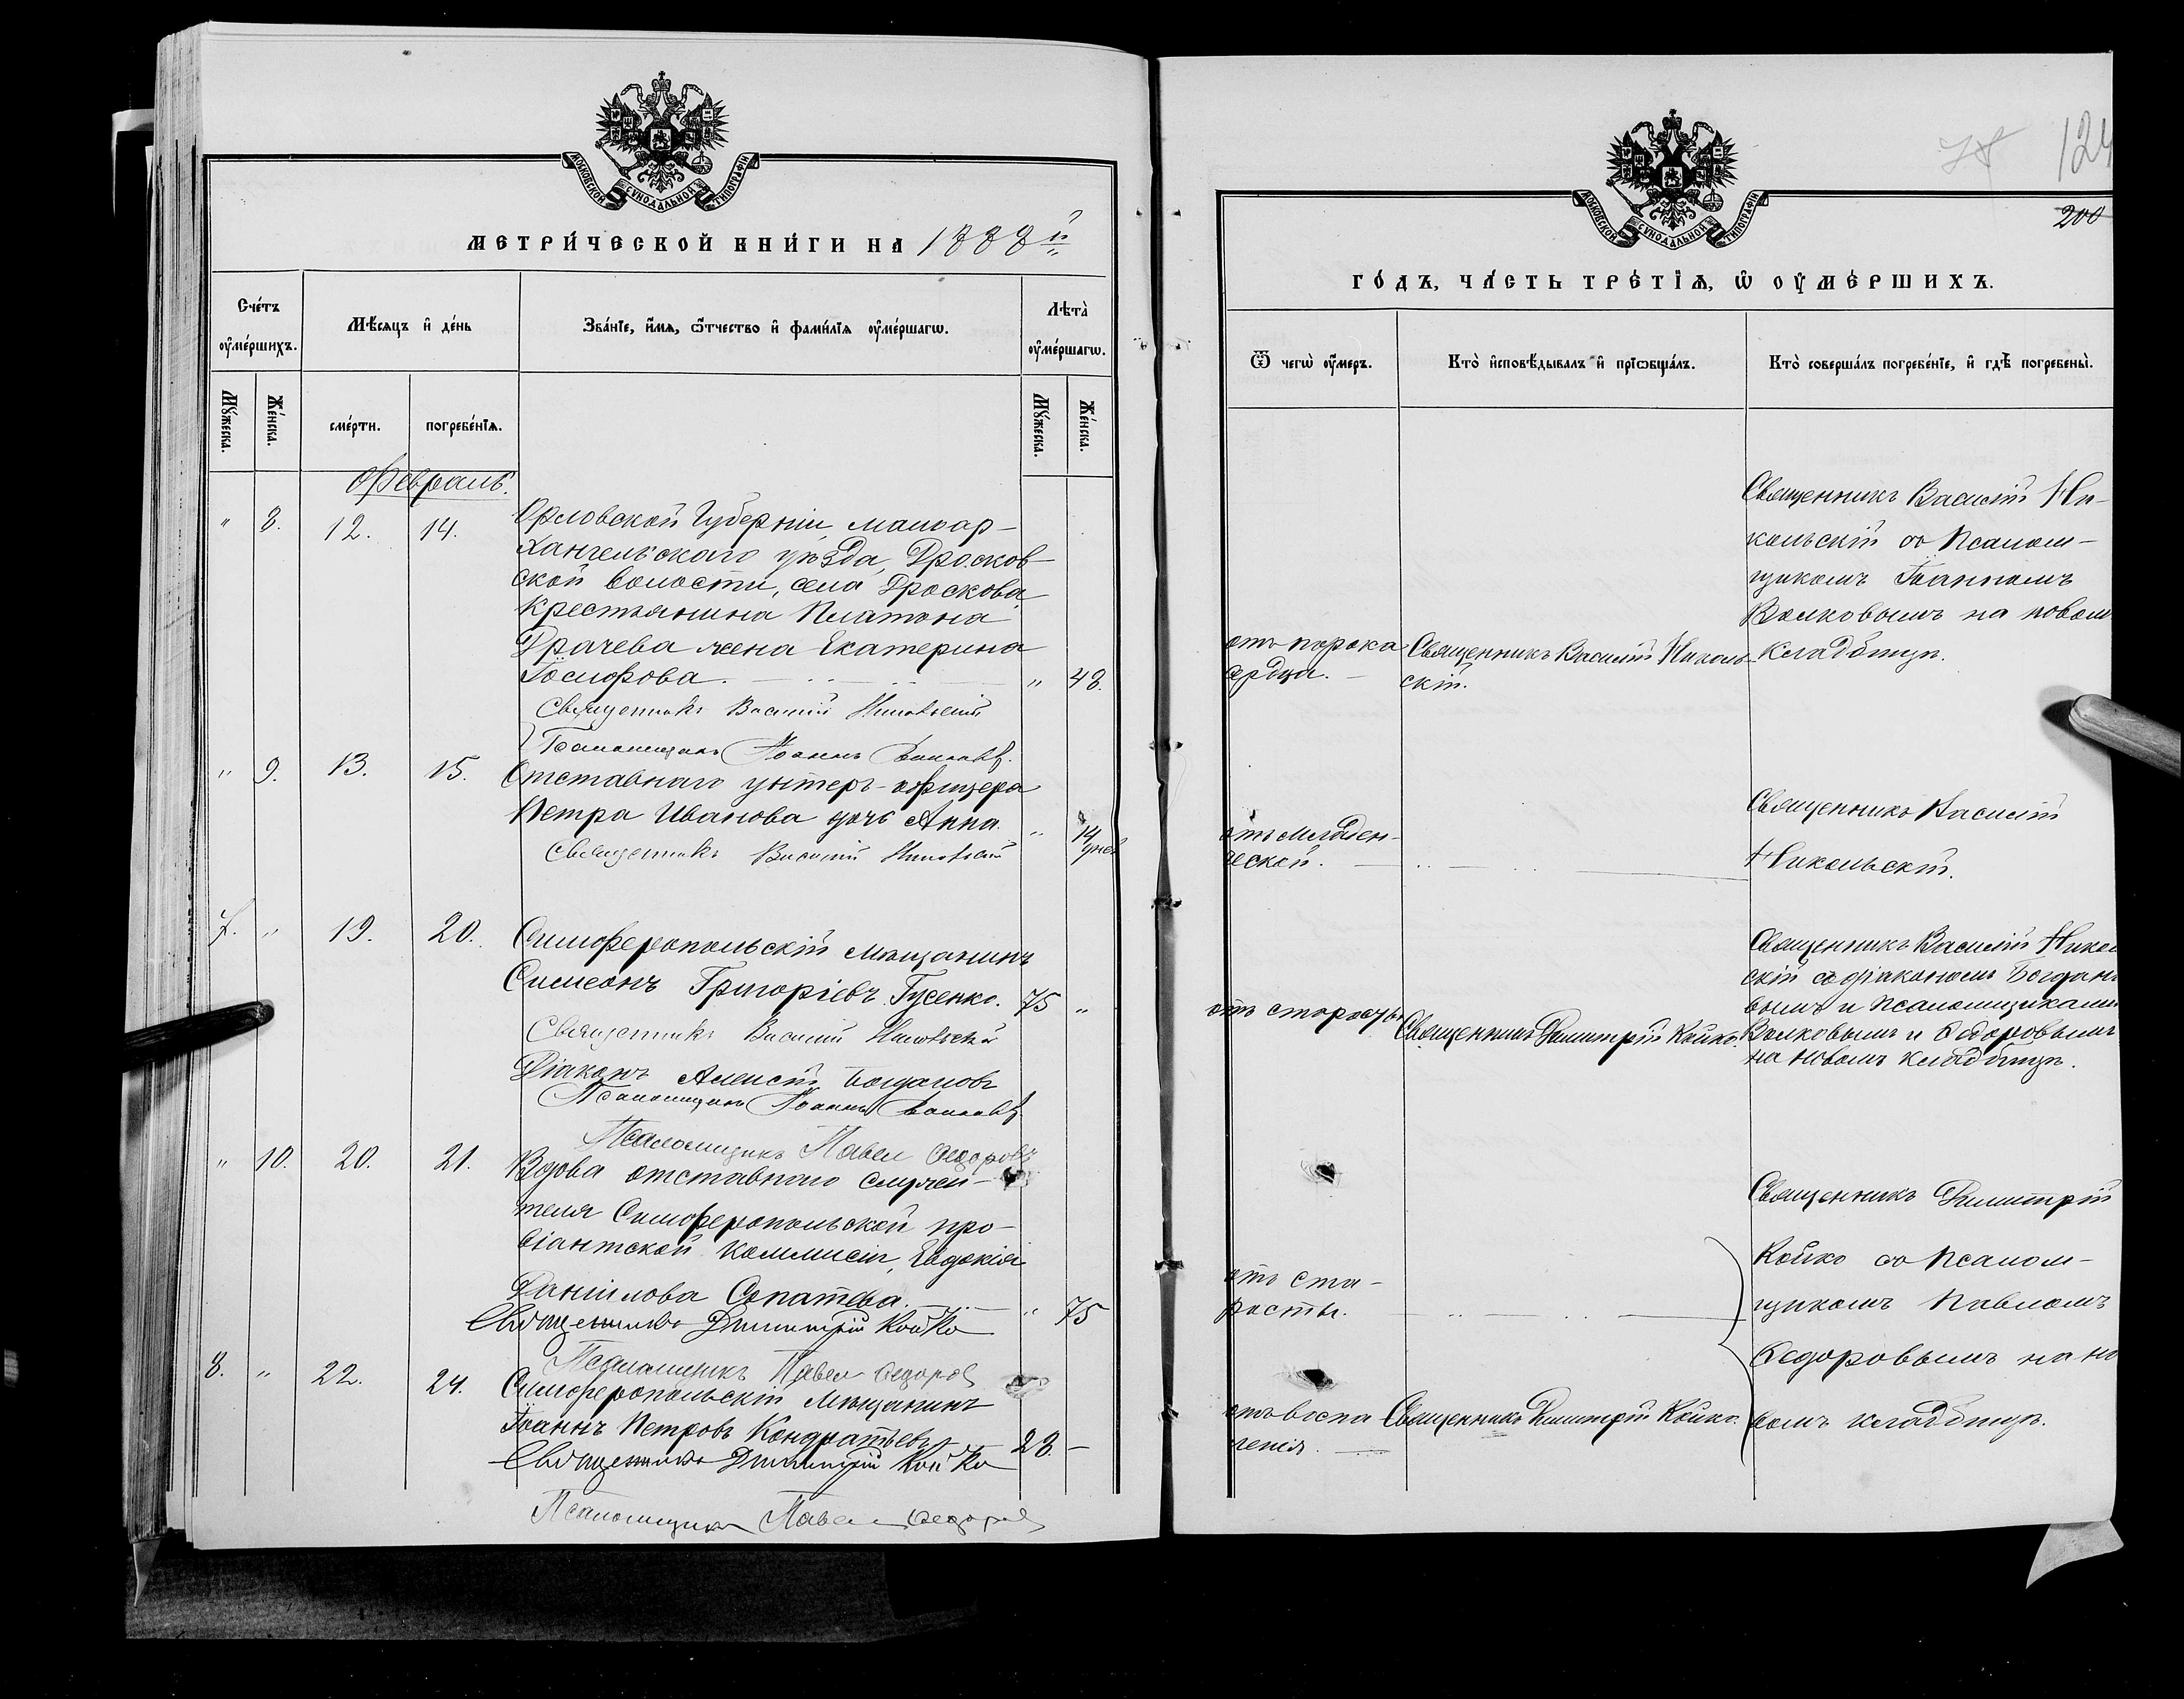 МОСКОВСКОЙ СѴНОДАЛЬНОЙ ТИПОГРАФІИ
МЕТРИ́ЧЕСКОЙ КНИ́ГИ НА 1888й
Сче́тъ оу҆ме́ршихъ.
Мѣ́сѧцъ и҆ де́нь
Зва́нїе, и҆́мѧ, ѻ҆́тчество и҆ фами́лїѧ оу҆ме́ршагѡ.
Лѣ́та оу҆ме́ршагѡ.
Мꙋ́жеска.
Же́нска.
сме́рти.
погребе́нїѧ.
Мꙋ́жеска.
Же́нска.
Февраль.
" 8. 12. 14. Орловской Губерніи, малоар-
хангельскаго уѣзда, Дросков-
ской волости, села Дроскова
крестьянина Платона
Драчева жена Екатерина
Іосифова. " 48.
Священникъ Василій Никольскій
Псаломщикъ Іоаннъ Волковъ.
" 9. 13. 15. Отставнаго унтеръ-офицера
Петра Иванова дочь Анна. " 14 дней
Священникъ Василій Никольскій
7. " 19. 20. Симферопольскій мѣщанинъ
Симеонъ Григоріевъ Гусенко. 75 "
Священникъ Василій Никольскій
Діаконъ Алексій Богдановъ
Псаломщикъ Іоаннъ Волковъ.
Псаломщикъ Павел Федоровъ
" 10. 20. 21. Вдова отставнаго смотри-
теля Симферопольской про-
віантской коммисіи, Евдокія
Даніилова Сопатева. " 75
Священникъ Димитрій Койко
Псаломщикъ Павел Федоров
8. " 22. 24. Симферопольскій мѣщанинъ
Іоаннъ Петровъ Кондратьевъ 28. -
Священникъ Димитрій Койко
Псаломщикъ Павел Федоров
124
200
МОСКОВСКОЙ СѴНОДАЛЬНОЙ ТИПОГРАФІИ
ГО́ДЪ, ЧА́СТЬ ТРЕ́ТЇѦ, Ѡ҆ ОУ҆МЕ́РШИХЪ.
Ѿ чегѡ̀ оу҆́меръ.
Кто̀ и҆сповѣ́дывалъ и҆ прїѡбща́лъ.
Кто̀ соверша́лъ погребе́нїе, и҆ гдѣ̀ погребены̀.
Священникъ Василій Ни-
кольскій со Псалом-
щикомъ Іоанномъ
Волковымъ на новом
кладбищѣ.
отъ порока
сердца.
Священникъ Василій Николь-
скій.
отъ младен-
ческой.
Священникъ Василій
Никольскій.
отъ старости
Священникъ Димитрій Койко.
Священникъ Василій Николь
скій со діакономъ Богдано
вымъ и Псаломщиками
Волковымъ и Ѳедоровымъ
на новомъ кладбищѣ.
отъ ста-
рости.
Священникъ Димитрій
Койко со Псалом-
щикомъ Павломъ
Ѳедоровымъ на но
вомъ кладбищѣ.
отъ воспа
ленія.
Священникъ Димитрій Койко.